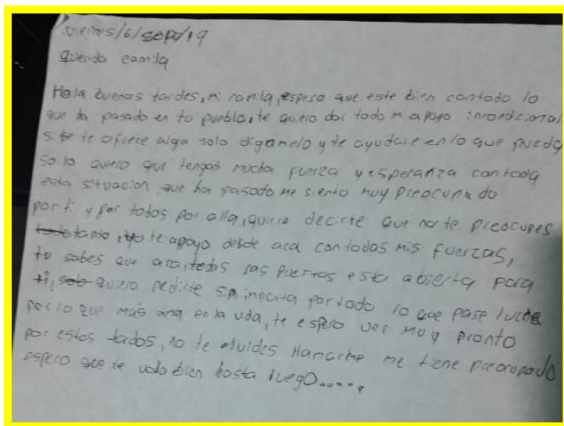 viernes/6/sept/19
Querida camila
Hola buenas tardes, mi camila, espero que este bien contodo lo
que ha pasado en tu pueblo, te quiero dar todo mi apoyo incondicional
si te te ofrece algo solo digamelo y te ayudare en lo que pueda
solo quiero que tengas mucha fuerza y esperanza con toda
esta situacion que ha pasado me siento muy preocupado
por ti y por todos por alla, quiero decirte que no te preocupes
tanto, yo te apoyo desde aca con todas mis fuerzas,
tu sabes que aca todas las puertas esta abierta para
ti, quiero pedirte sin importa por todo lo que pase luche
por lo que más ama en la vida, te espero ver muy pronto
por estos lados, no te olvides llamarme me tiene preocupado
espero que te vaya bien hasta luego.....,